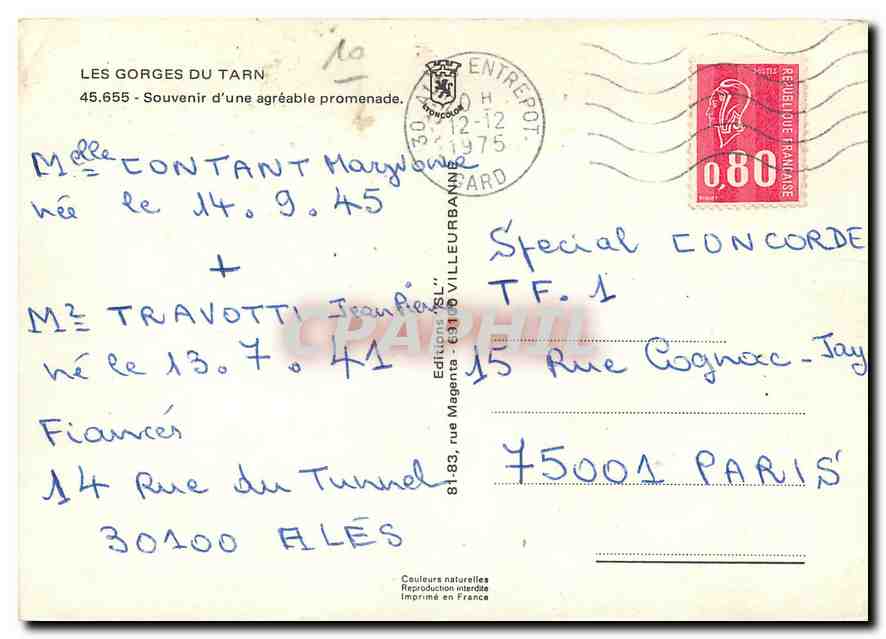 LES GORGES DU TARN
45.655 - Souvenir d'une agréable promenade.
10
LYONCOLOR
ENTREPOT.
H
12-12
1975
GARD
30
POSTES
RÉPUBLIQUE FRANÇAISE
0,80
Melle CONTANT Maryvonne
née le 14.9.45
+
Mr TRAVOTTI Jean Pierre
né le 13.7.41
Fiancés
14 Rue du Tunnel
30100 ALÈS
Editions "SL"
81-83, rue Magenta - 69100 VILLEURBANNE
Special CONCORDE
TF.1
15 Rue Cognac-Jay
75001 PARIS
CPAPHIL
Couleurs naturelles
Reproduction interdite
Imprimé en France